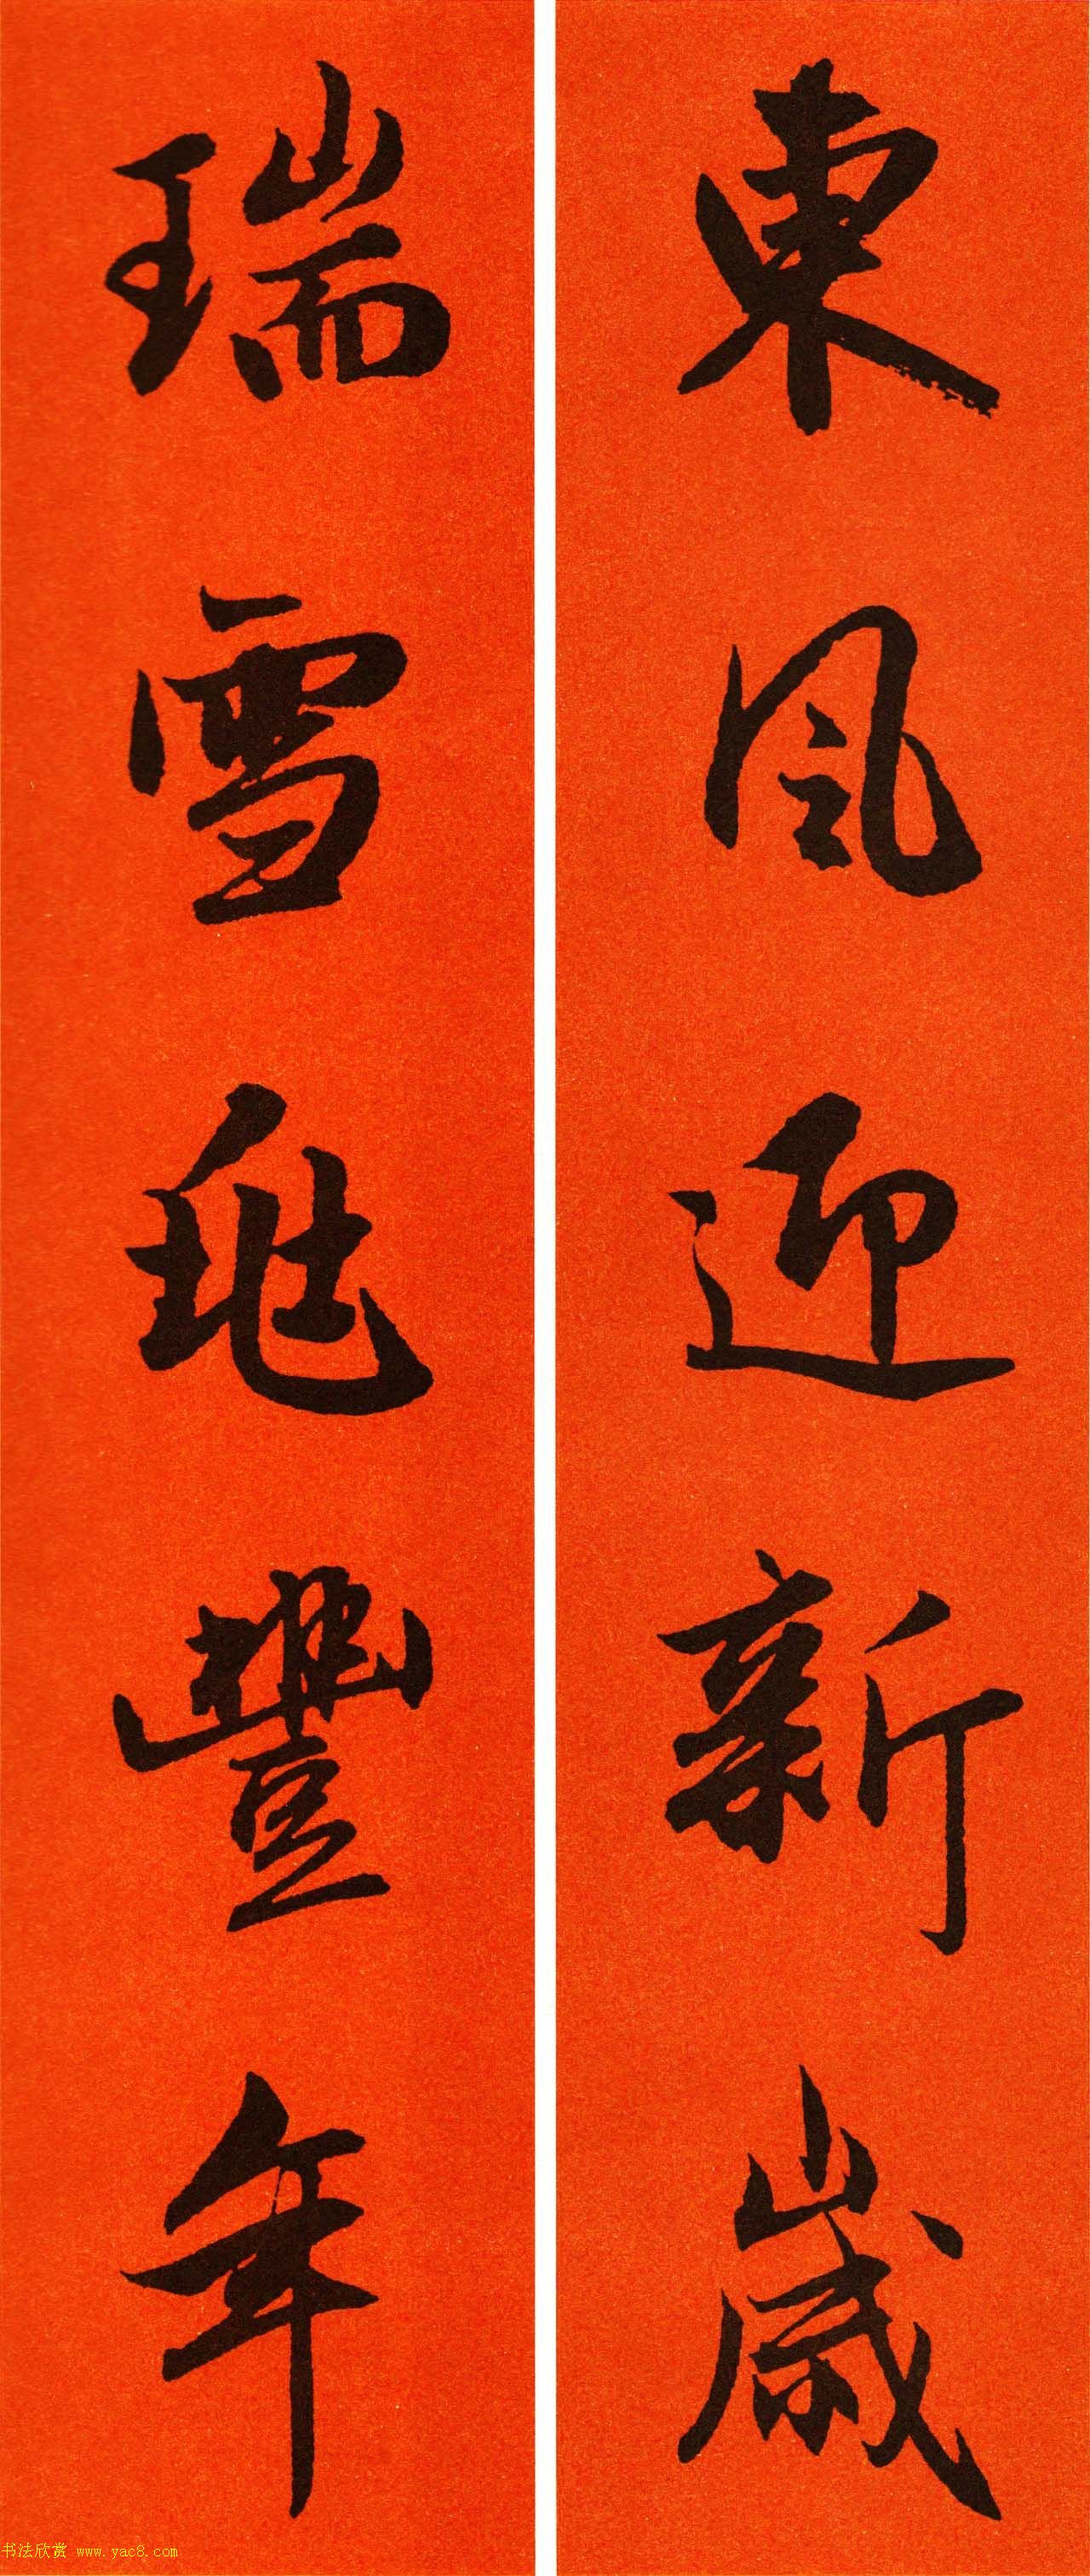 東風迎新歲
瑞雪兆豐年
书法欣赏 www.yac8.com